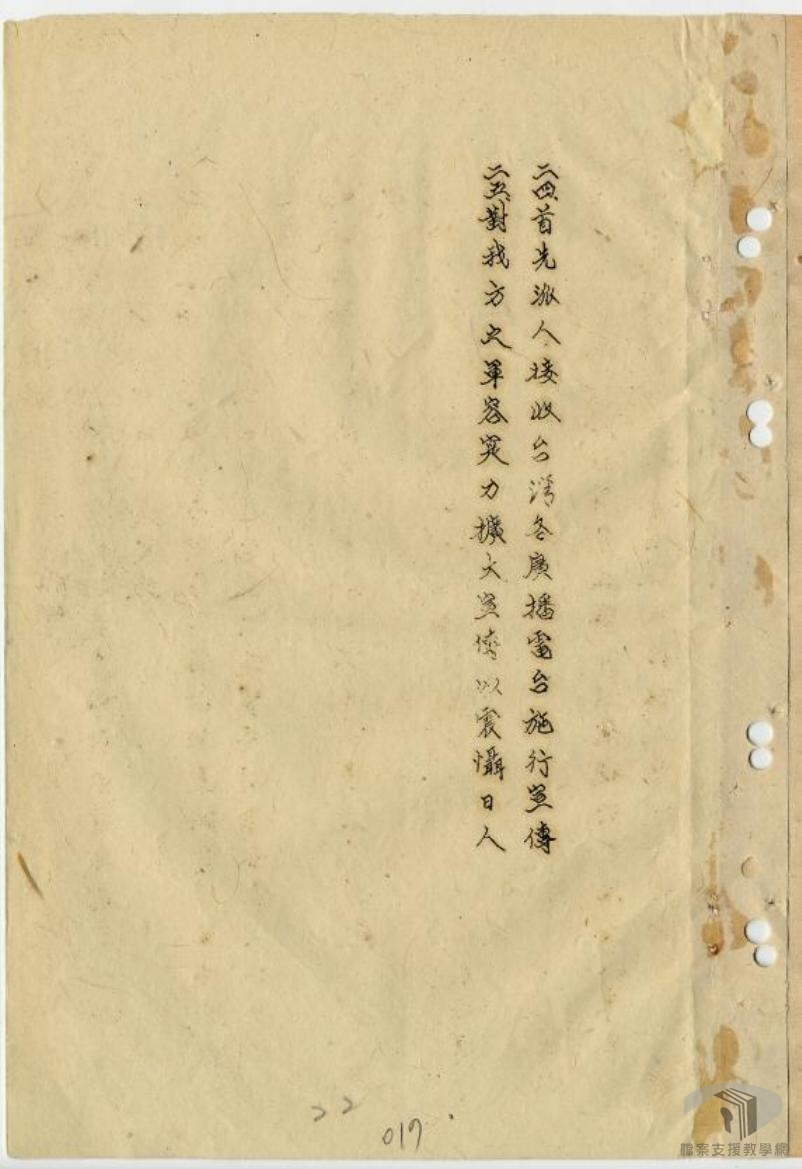 二四、首先派人接收台灣各廣播電台施行宣傳
二五、對我方之軍容実力擴大宣傳以震懾日人
22
017
檔案支援教學網